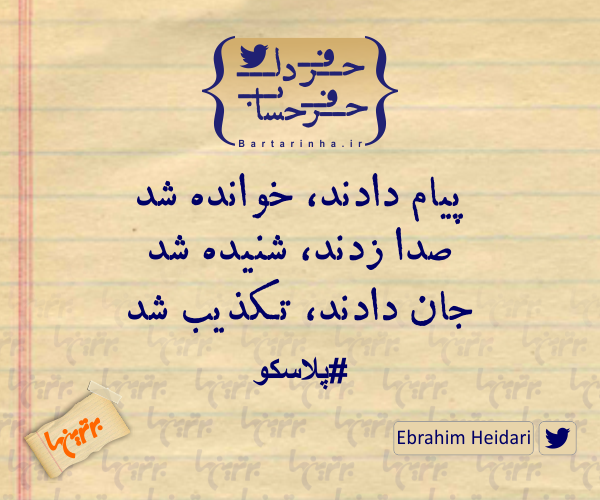 حرف دل
حرف حساب
Bartarinha.ir
پیام دادند، خوانده شد
صدا زدند، شنیده شد
جان دادند، تکذیب شد
#پلاسکو
برترین‌ها
Ebrahim Heidari